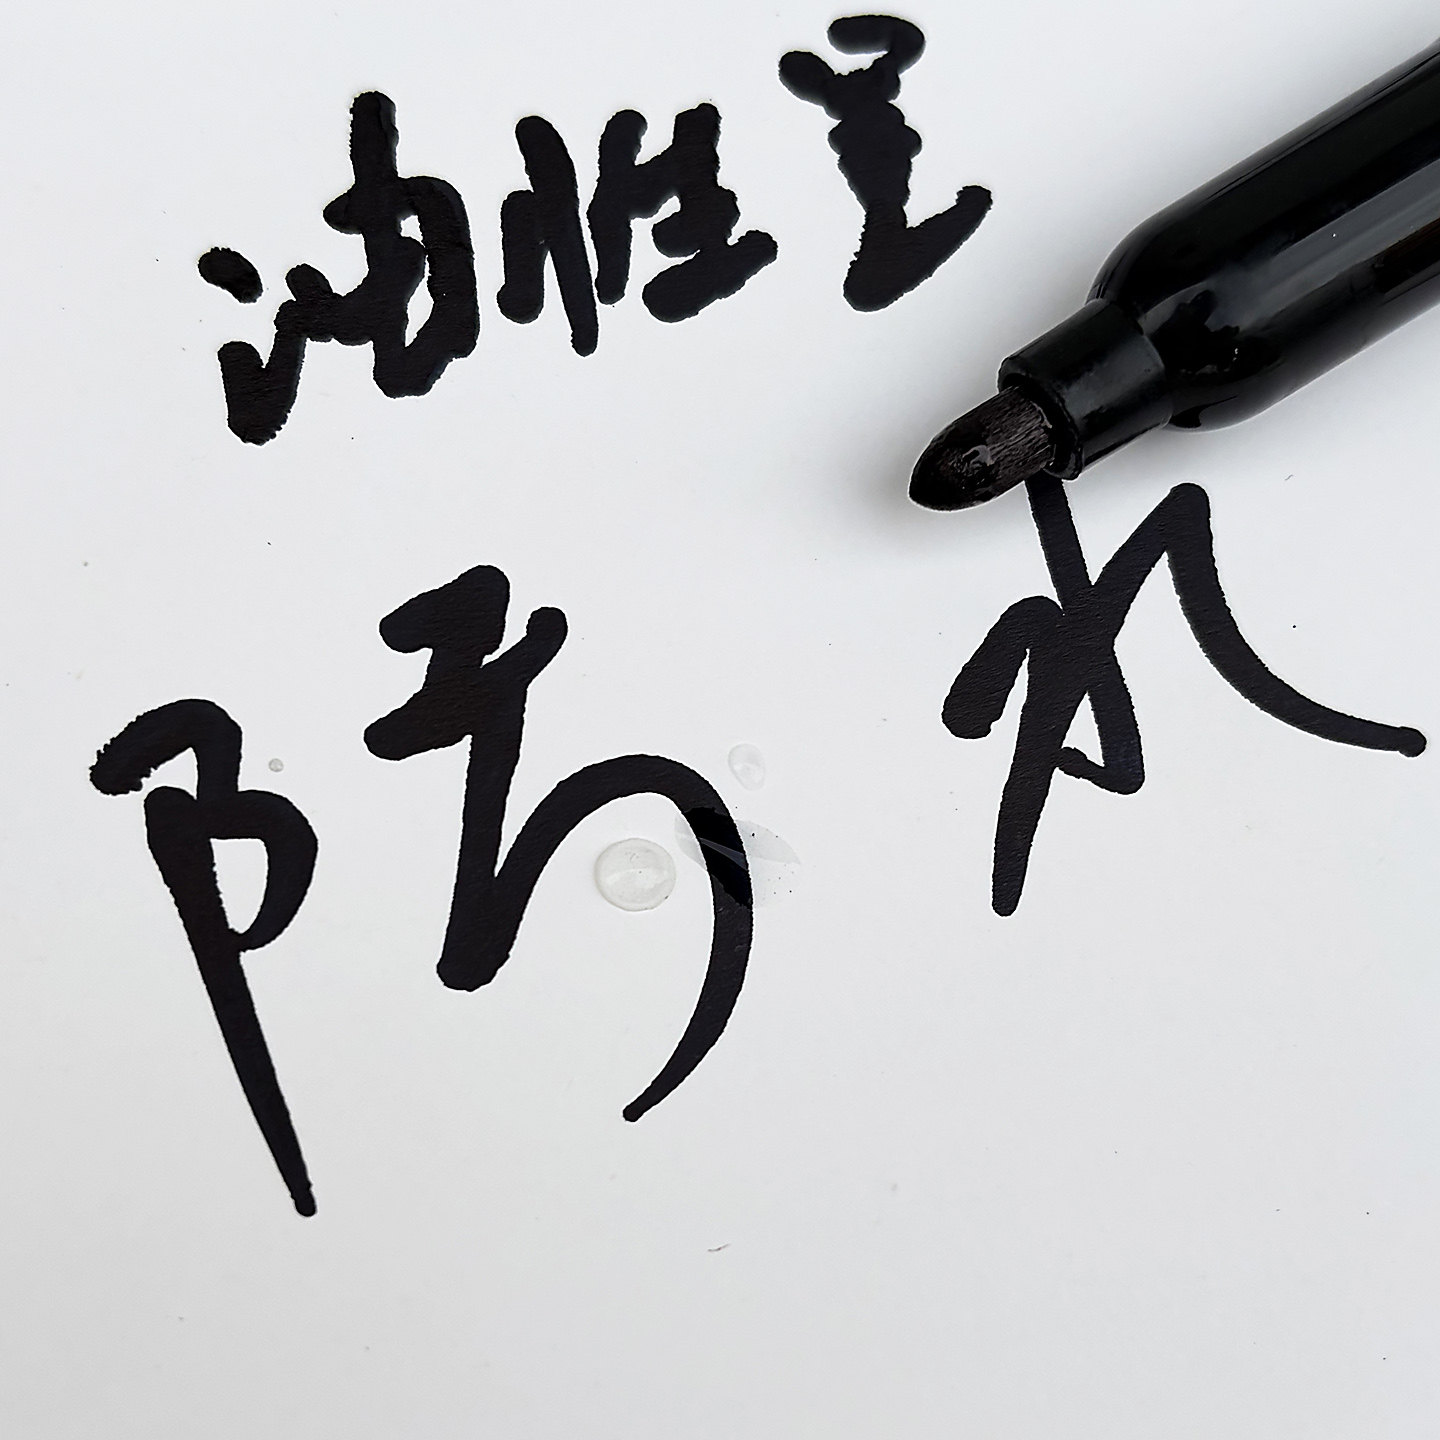 油性
防水